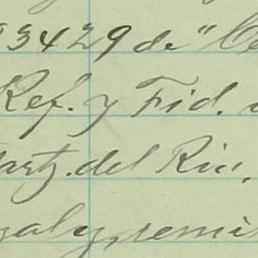 3429 de "Ce
Ref. y Fid.
artz. del Rio,
galy, remi